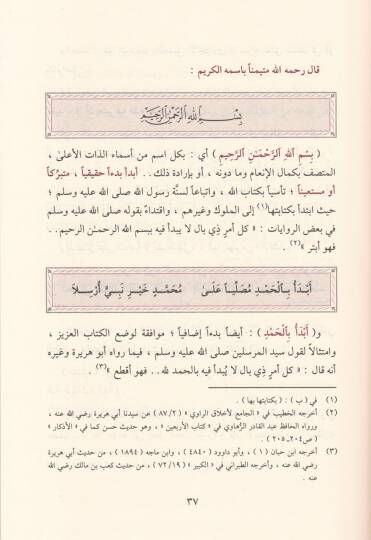 قال رحمه الله متيمناً باسمه الكريم :
بِسْمِ اللهِ الرَّحْمَنِ الرَّحِيمِ
( بِسْمِ اللهِ الرَّحْمَـٰنِ الرَّحِيمِ ) أي : بكل اسم من أسماء الذات الأعلىٰ ،
المتصف بكمال الإنعام وما دونه ، أو بإرادة ذلك . . أبدأ بدءاً حقيقياً ، متبرّكاً
أو مستعيناً ؛ تأسياً بكتاب الله ، واتباعاً لسنَّة رسول الله صلى الله عليه وسلم ؛
حيث ابتدأ بكتابتها(١) إلى الملوك وغيرهم ، واقتداءً بقوله صلى الله عليه وسلم
في بعض الروايات : « كل أمرٍ ذي بال لا يبدأ فيه ببسم الله الرحمـٰن الرحيم . .
فهو أبتر »(٢) .
أَبْدَأُ بِالْحَمْدِ مُصَلِّياً عَلَىٰ مُحَمَّدٍ خَيْرِ نَبِيٍّ أُرْسِلَا
و( أَبْدَأُ بِالْحَمْدِ ) : أيضاً بدءاً إضافياً ؛ موافقة لوضع الكتاب العزيز ،
وامتثالاً لقول سيد المرسلين صلى الله عليه وسلم ، فيما رواه أبو هريرة وغيره
أنه قال : « كل أمرٍ ذي بال لا يُبدأ فيه بالحمد لله . . فهو أقطع »(٣) .
(١) في ( ب ) : ( بكتابتها بها ) .
(٢) أخرجه الخطيب في « الجامع لأخلاق الراوي » ( ٨٧/٢ ) عن سيدنا أبي هريرة رضي الله عنه ،
ورواه الحافظ عبد القادر الرُّهاوي في « كتاب الأربعين » ، وهو حديث حسن كما في « الأذكار »
( ص٢٠٤ـ٢٠٥ ) .
(٣) أخرجه ابن حبان ( ١ ) ، وأبو داوود ( ٤٨٤٠ ) ، وابن ماجه ( ١٨٩٤ ) ، من حديث أبي هريرة
رضي الله عنه ، وأخرجه الطبراني في « الكبير » ( ٧٢/١٩ ) ، من حديث كعب بن مالك رضي الله
عنه .
٣٧